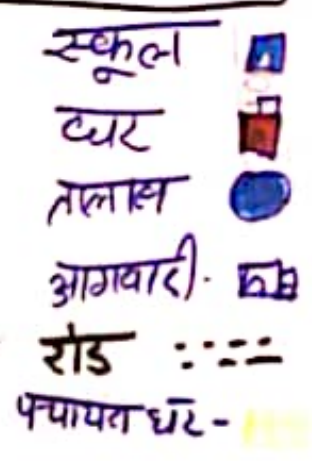 स्कूल
घर
तालाब
आगवाडी.
रोड
पंचायत घर -